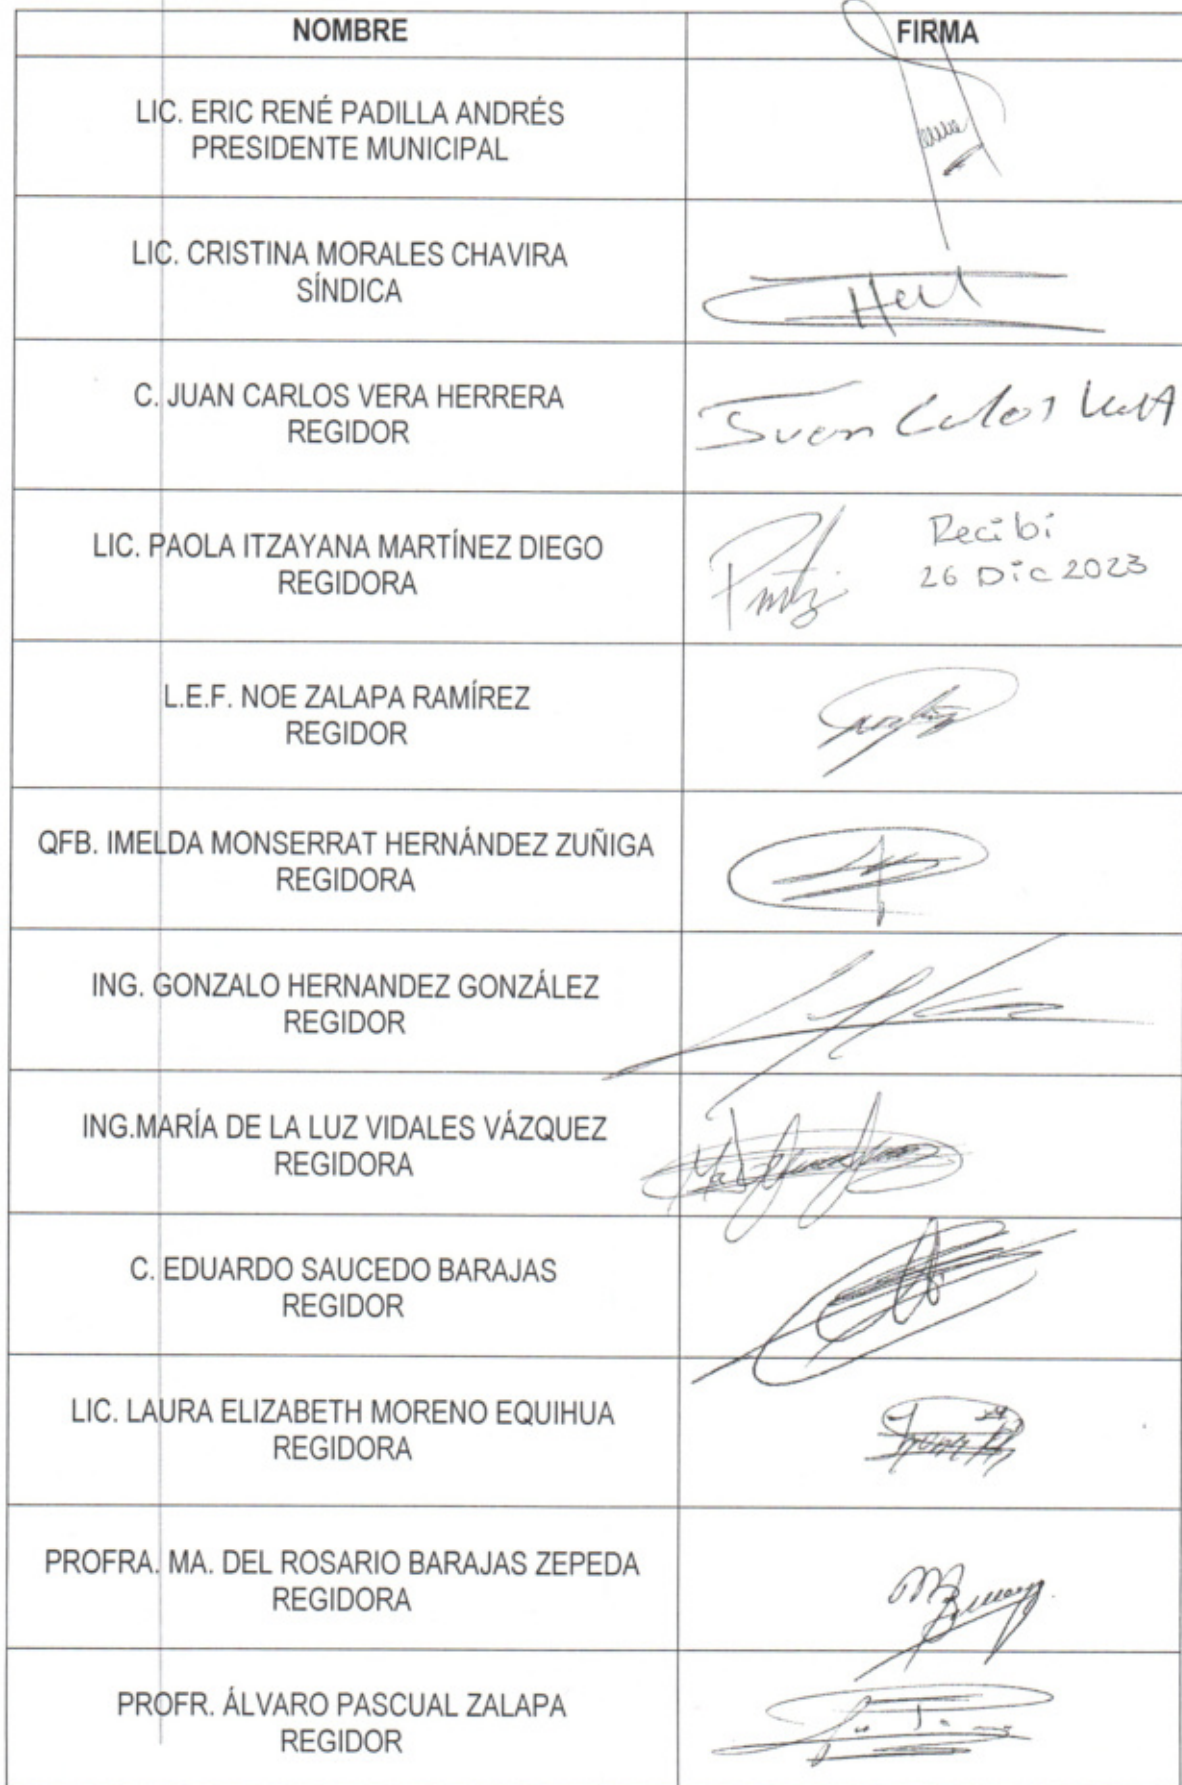 NOMBRE FIRMA
LIC. ERIC RENÉ PADILLA ANDRÉS
PRESIDENTE MUNICIPAL
LIC. CRISTINA MORALES CHAVIRA
SÍNDICA
C. JUAN CARLOS VERA HERRERA
REGIDOR
Juan Carlos
LIC. PAOLA ITZAYANA MARTÍNEZ DIEGO
REGIDORA
Recibi
26 Dic 2023
L.E.F. NOE ZALAPA RAMÍREZ
REGIDOR
QFB. IMELDA MONSERRAT HERNÁNDEZ ZUÑIGA
REGIDORA
ING. GONZALO HERNANDEZ GONZÁLEZ
REGIDOR
ING.MARÍA DE LA LUZ VIDALES VÁZQUEZ
REGIDORA
C. EDUARDO SAUCEDO BARAJAS
REGIDOR
LIC. LAURA ELIZABETH MORENO EQUIHUA
REGIDORA
PROFRA. MA. DEL ROSARIO BARAJAS ZEPEDA
REGIDORA
PROFR. ÁLVARO PASCUAL ZALAPA
REGIDOR